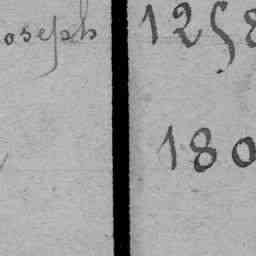 oseph 125
180